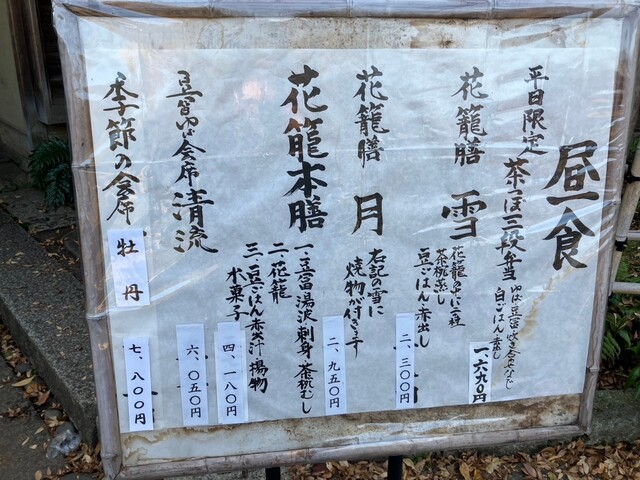 昼食
平日限定
茶つぼ三段弁当
ゆば豆富炊き合せなど
白ごはん赤だし
一、六九〇円
花籠膳 雪
花籠
茶椀蒸し
豆ごはん赤出し
二、三〇〇円
花籠膳 月
右記の雪に
焼物が付きます
二、九五〇円
花籠本膳
一、豆富 湯波 刺身 茶椀むし
二、花籠
三、豆ごはん 赤出汁 揚物
水菓子
四、一八〇円
豆富ゆば会席 清流
六、〇五〇円
季節の会席
牡丹
七、八〇〇円